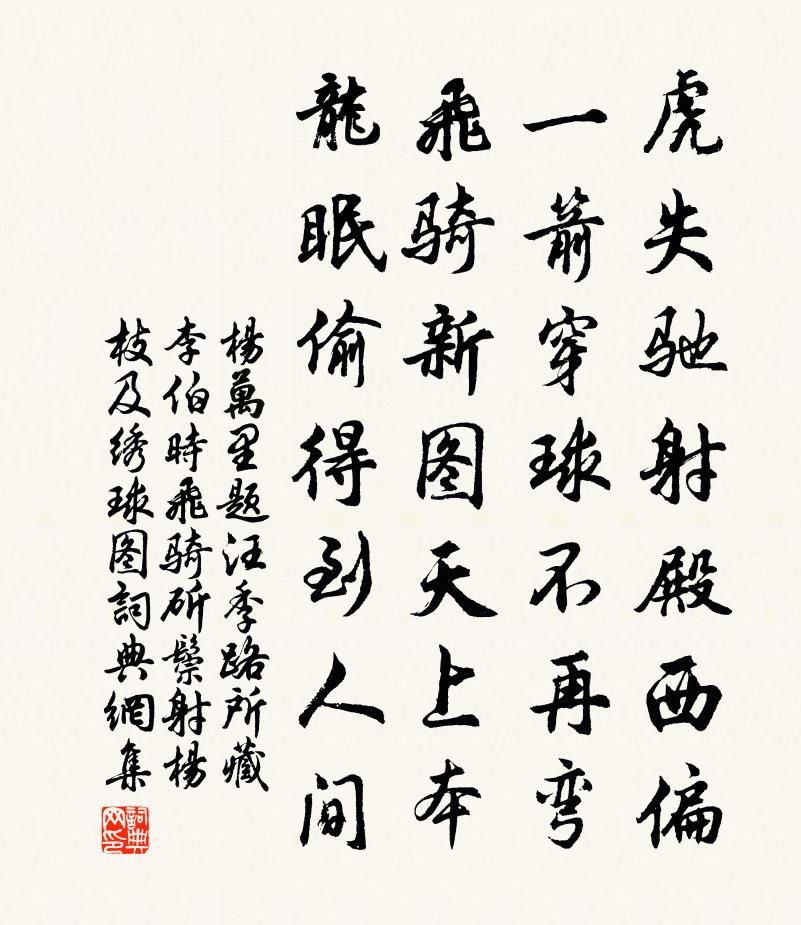 虎失驰射殿西偏
一箭穿球不再弯
飛骑新图天上本
龍眠偷得到人间
楊萬里题汪季路所藏
李伯時飛骑斫鬃射楊
枝及绣球图詞典網集
詞典网印